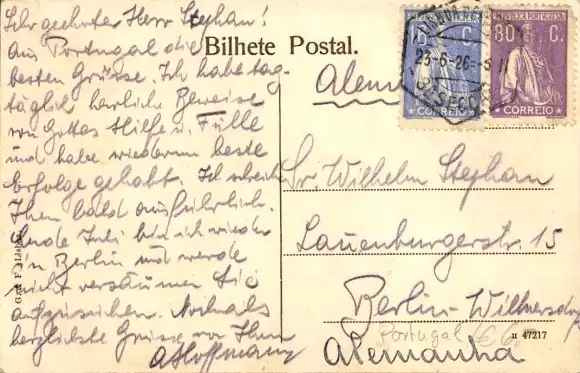 Sehr geehrter Herr Stephan!
Aus Portugal die
besten Grüsse. Ich habe tag-
täglich herrliche Beweise
von Gottes Hilfe u. Fülle
und habe wiederum beste
Erfolge gehabt. Ich schreibe
Ihnen bald ausführlich.
Ende Juli bin ich wieder
in Berlin und werde
nicht versäumen Sie
aufzusuchen. Nochmals
herzlichste Grüsse von Ihrem
A Hoffmann
Bilhete Postal.
REPUBLICA PORTUGUESA
16 C.
CORREIO
REPUBLICA PORTUGUESA
80 C.
CORREIO
23-6-26
Alem
Wilhelm Stephan
Lauenburgerstr. 15
Berlin-Wilmersdorf
Portugal
Alemanha
47217